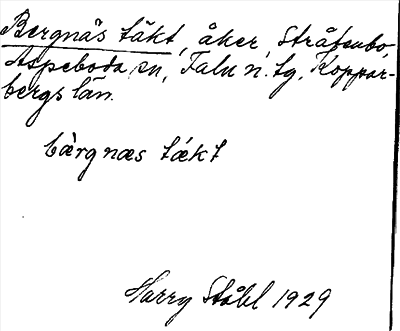 Bergnäs täkt, åker, Stråtenbo,
Aspeboda sn, Falu n. tg, Koppar-
bergs län.
bàrgnæs tǽkt
Harry Ståhl 1929